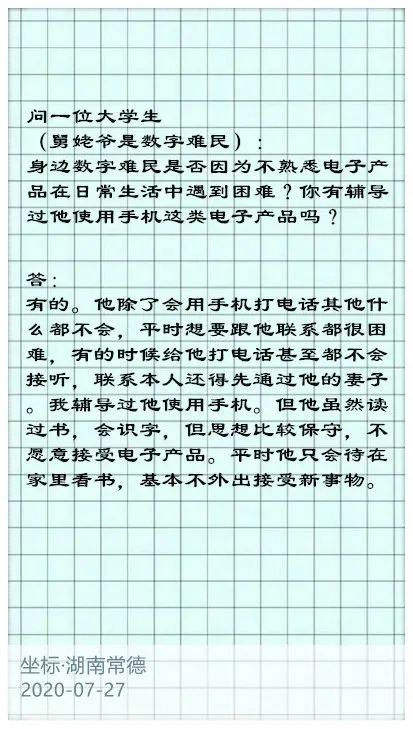 问一位大学生
（舅姥爷是数字难民）：
身边数字难民是否因为不熟悉电子产
品在日常生活中遇到困难？你有辅导
过他使用手机这类电子产品吗？
答：
有的。他除了会用手机打电话其他什
么都不会，平时想要跟他联系都很困
难，有的时候给他打电话甚至都不会
接听，联系本人还得先通过他的妻子
。我辅导过他使用手机。但他虽然读
过书，会识字，但思想比较保守，不
愿意接受电子产品。平时他只会待在
家里看书，基本不外出接受新事物。
坐标·湖南常德
2020-07-27